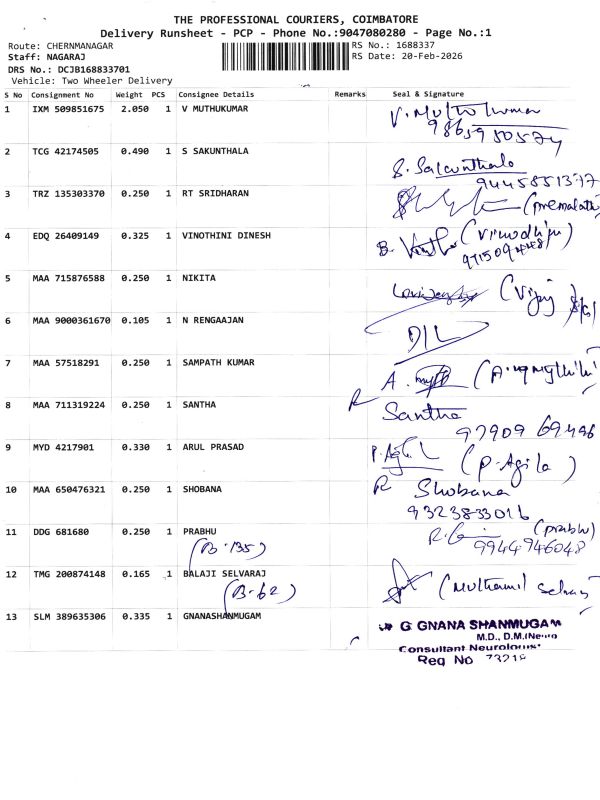 THE PROFESSIONAL COURIERS, COIMBATORE
Delivery Runsheet - PCP - Phone No.:9047080280 - Page No.:1
Route: CHERNMANAGAR RS No.: 1688337
Staff: NAGARAJ RS Date: 20-Feb-2026
DRS No.: DCJB168833701
Vehicle: Two Wheeler Delivery
S No Consignment No Weight PCS Consignee Details Remarks Seal & Signature
1 IXM 509851675 2.050 1 V MUTHUKUMAR V. Muthukumar
9865980574
2 TCG 42174505 0.490 1 S SAKUNTHALA S. Sakunthala
9445851377
3 TRZ 135303370 0.250 1 RT SRIDHARAN (Premalath
4 EDQ 26409149 0.325 1 VINOTHINI DINESH B.
5 MAA 715876588 0.250 1 NIKITA (Vijay)
6 MAA 9000361670 0.105 1 N RENGAAJAN D/L
7 MAA 57518291 0.250 1 SAMPATH KUMAR A.
8 MAA 711319224 0.250 1 SANTHA R Santha
97909 69496
9 MYD 4217901 0.330 1 ARUL PRASAD P. Agila (P. Agila)
10 MAA 650476321 0.250 1 SHOBANA R Shobana
9323833016
11 DDG 681680 0.250 1 PRABHU (prabhu)
(B-135) 9944946048
12 TMG 200874148 0.165 1 BALAJI SELVARAJ (Muthamil Selvan)
(B-62)
13 SLM 389635306 0.335 1 GNANASHANMUGAM G GNANA SHANMUGAM
M.D., D.M.(Neuro
Consultant Neurologist
Reg No 73219